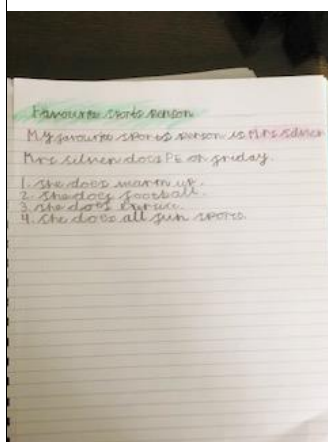 Favourite sports person
My favourite sports person is Mrs silver
Mrs silver does PE on friday.
1. she does warm up.
2. she does football.
3. she does
4. she does all fun sports.